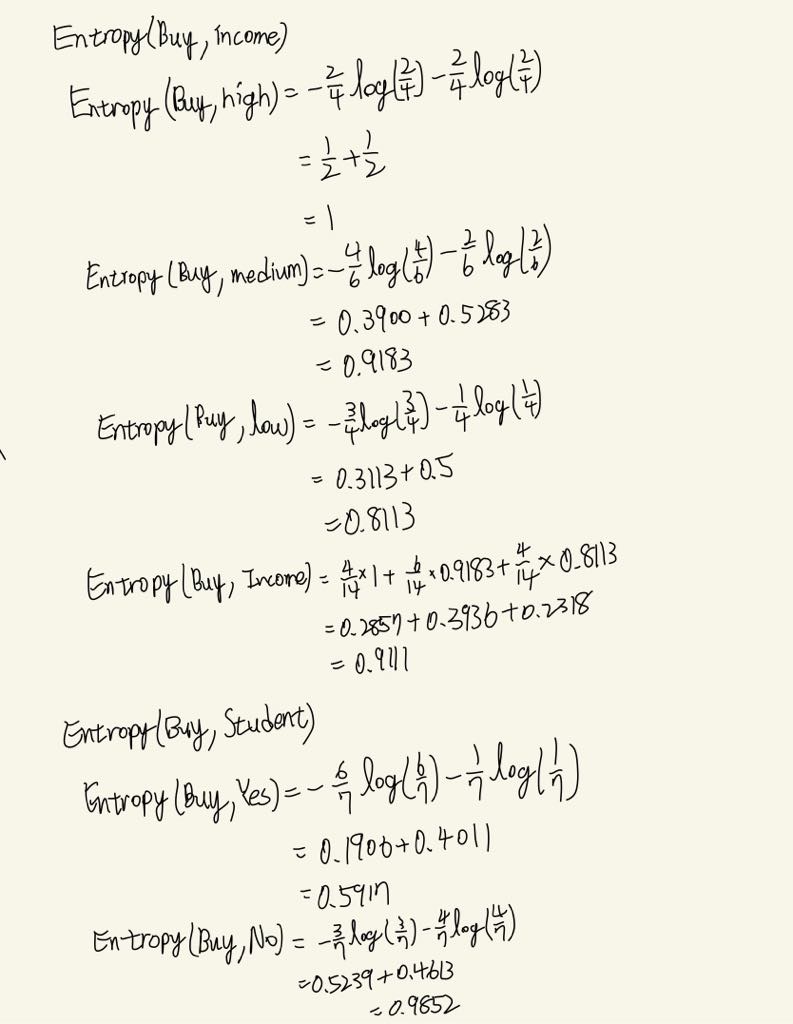 Entropy(Buy, income)
Entropy(Buy, high) = -2/4 log(2/4) - 2/4 log(2/4)
= 1/2 + 1/2
= 1
Entropy(Buy, medium) = -4/6 log(4/6) - 2/6 log(2/6)
= 0.3900 + 0.5283
= 0.9183
Entropy(Buy, low) = -3/4 log(3/4) - 1/4 log(1/4)
= 0.3113 + 0.5
= 0.8113
Entropy(Buy, Income) = 4/14 × 1 + 6/14 × 0.9183 + 4/14 × 0.8113
= 0.2857 + 0.3936 + 0.2318
= 0.9111
Entropy(Buy, Student)
Entropy(Buy, Yes) = -6/7 log(6/7) - 1/7 log(1/7)
= 0.1906 + 0.4011
= 0.5917
Entropy(Buy, No) = -3/7 log(3/7) - 4/7 log(4/7)
= 0.5239 + 0.4613
= 0.9852